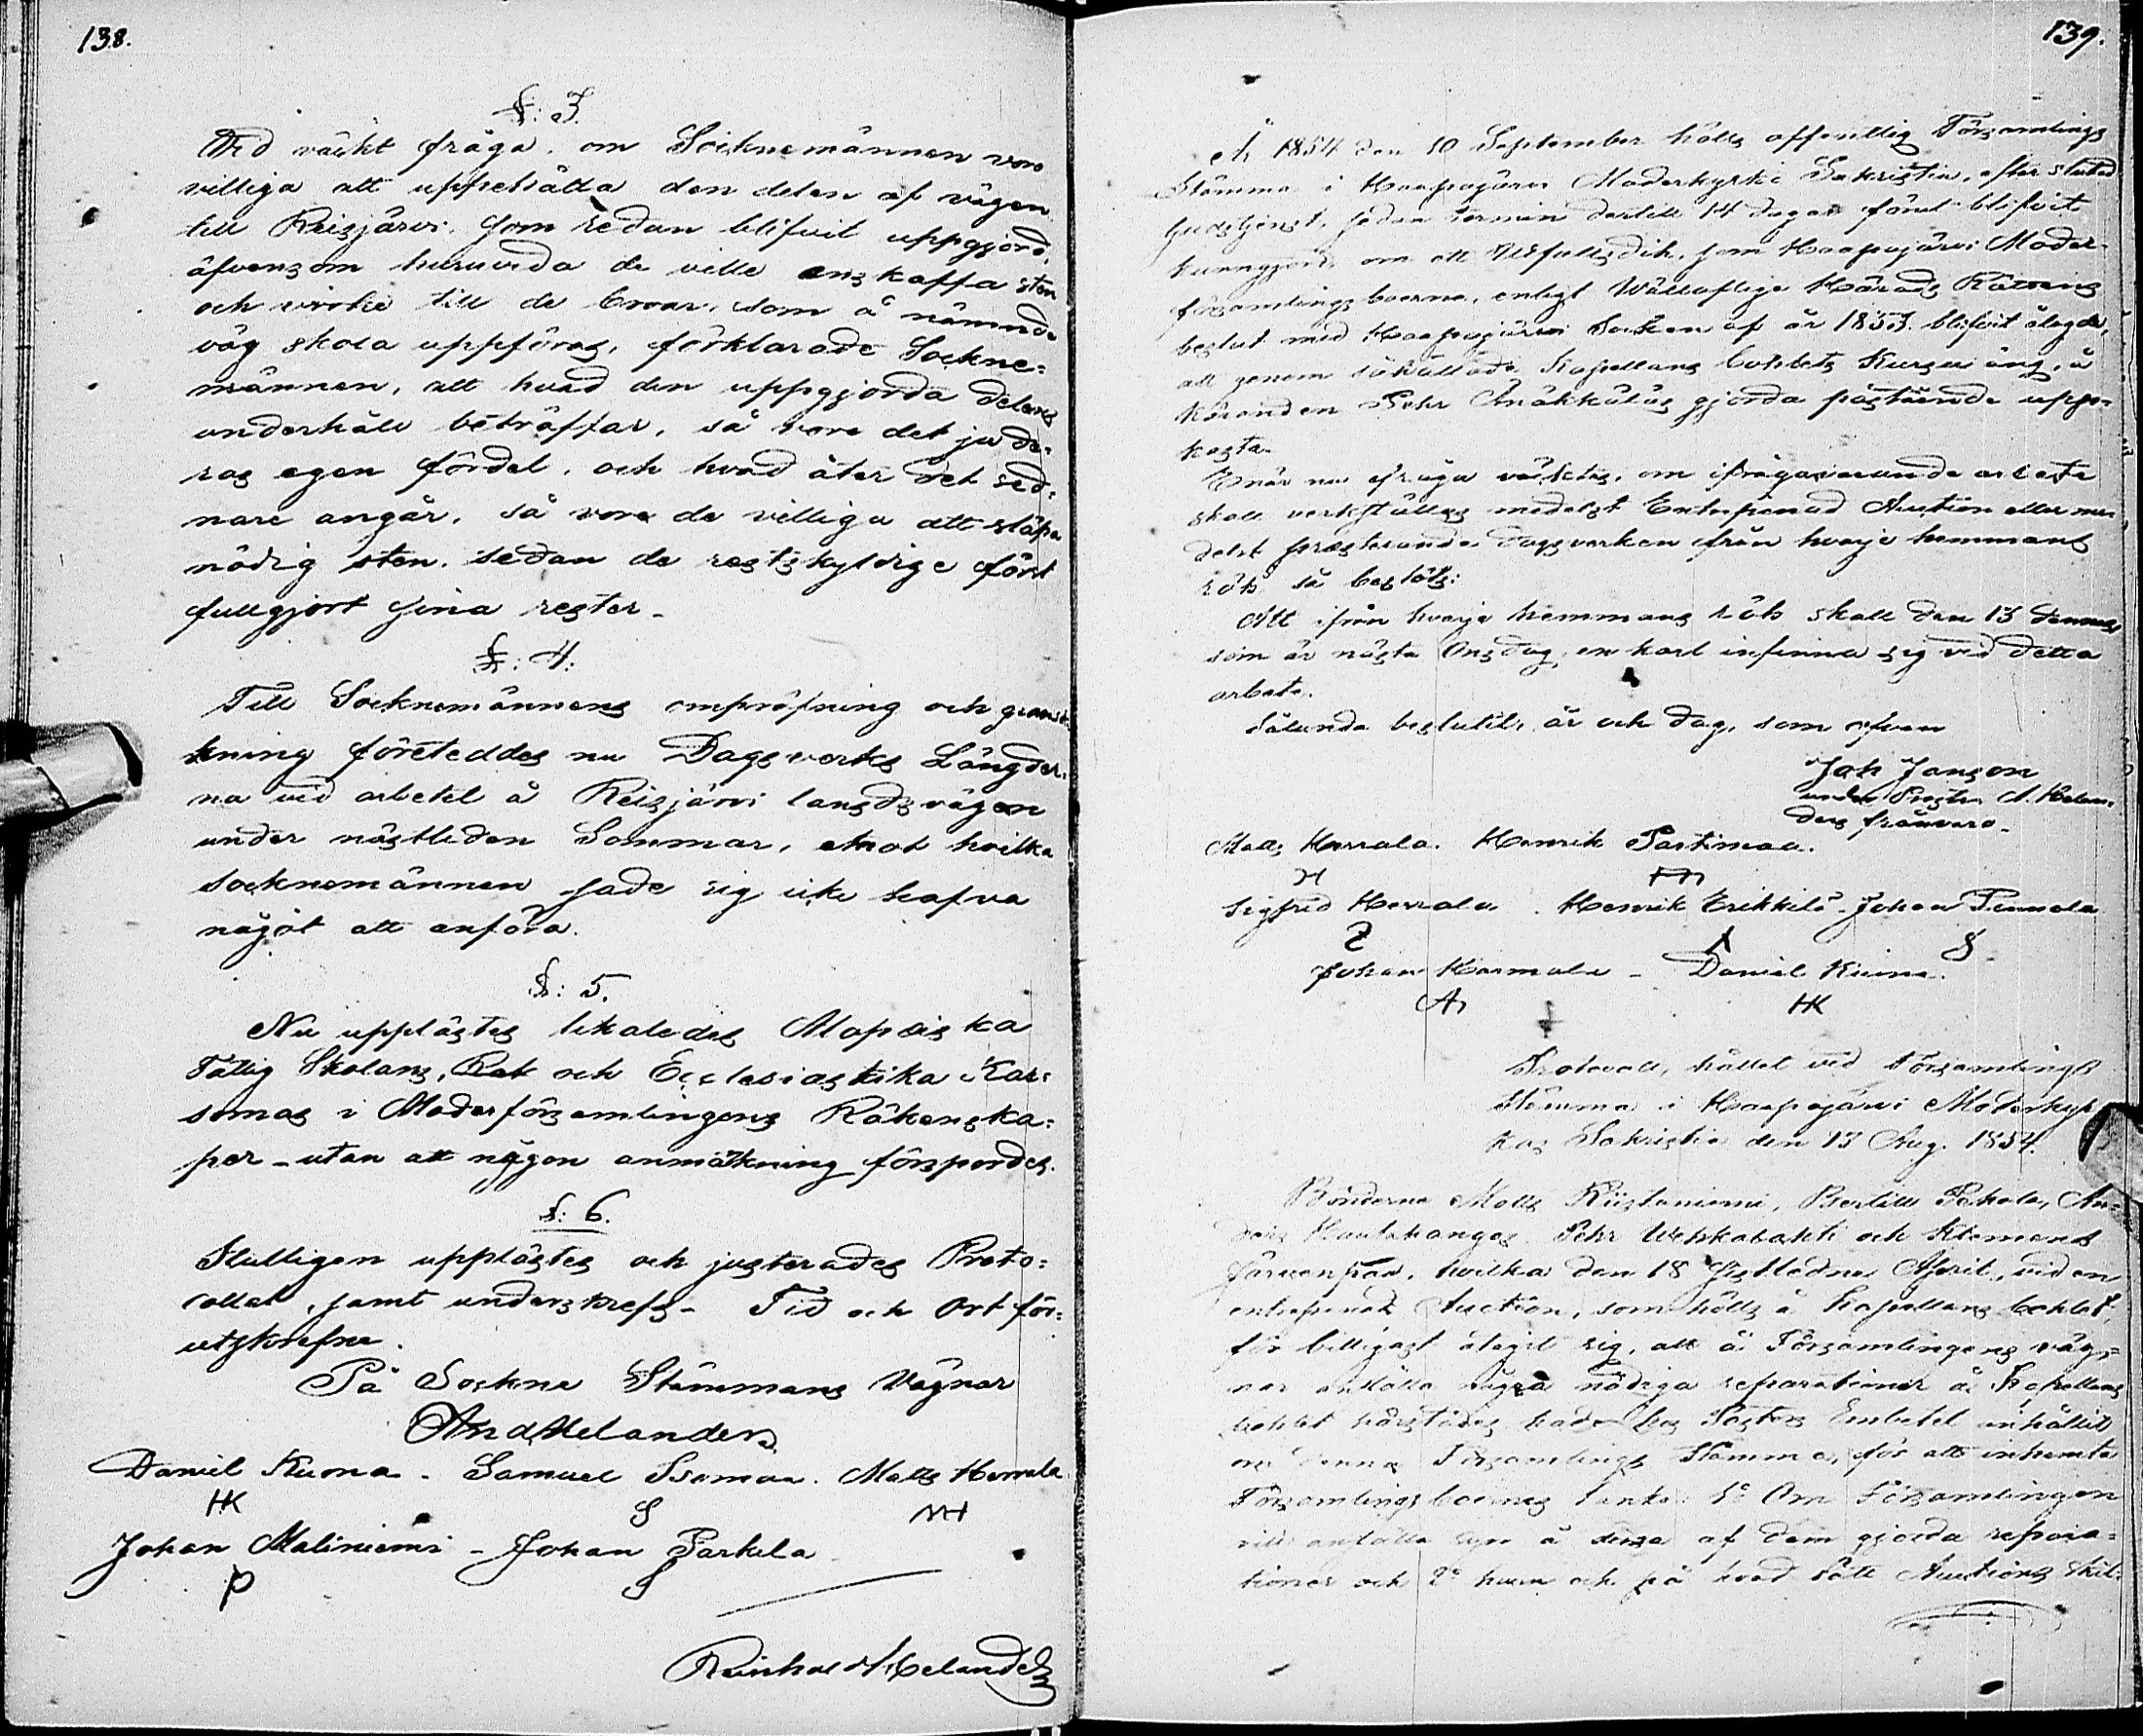 138.
§: 3.
Vid väckt fråga, om Socknemännen voro
villiga att uppehålla den delen af vägen
till Reisjärvi, som redan blifvit uppgjord,
äfvensom huruvida de ville anskaffa sten
och virke till de broar, som å nämnde
väg skola uppföras, förklarade Sockne=
männen, att hvad den uppgjorda delens
underhåll beträffar, så vore det ju de=
ras egen fördel, och hvad åter det sed=
nare angår, så vore de villiga att släpa
nödig sten, sedan de restskyldige först
fullgjort sina rester.
§: 4:
Till Socknemännens ompröfning och gransk
kning företeddes nu Dagsverks Längder=
na vid arbetet å Reisjärvi landsvägen
under nästleden Sommar, emot hvilka
socknemännen sade sig icke hafva
något att anföra.
§: 5.
Nu upplästes likaledes
Fattig Skolans, och Ecclesiastika Kas=
sornas i Moderförsamlingens Räkenska=
per – utan att någon anmärkning förspordes.
§: 6.
Slutligen upplästes och justerades Proto=
collet, samt underskrefs – Tid och Ort för=
utskrefne.
På Sockne Stämmans Vägnar
And Helander
Daniel Kuona. Samuel Isomaa. Matts Herrala
HK S MH
Johan Maliniemi – Johan Parkela
P S
Reinhold Helander
139.
År 1854 den 10 September hölls offentlig Församlings
Stämma i Haapajärvi Moderkyrko Sakristia, efter slutad
Gudstjenst, sedan termin dertill 14 dagar förut blifvit
kunngjord, om ett Utfallsdik, som Haapajärvi Moder=
församlingsboerne, enligt Wällofliga Härads Rättens
beslut med Haapajärvi Socken af år 1853 blifvit ålagde,
att genom så kallade Kapellans bohlets äng, å
käranden Pehr gjorda påstående upp=
kasta.
Enär nu fråga väcktes, om ifrågavarande arbete
skall verkställas medelst Entreprenad Auction eller me
delst præsterande dagsverken från hvarje hemmans
rök så beslöts:
Att ifrån hvarje hemmans rök skall den 13 dennes,
som är nästa Onsdag, en karl infinna sig vid detta
arbete.
Sålunda beslutit, år och dag, som ofvan
Joh Janson
under Prosten A. Helan=
ders frånvaro.
Matts Herrala. Henrik Pastimaa.
H
Sigfrid Herrala. Henrik Erikkilä. Johan Pennala
Johan Karmala – Daniel Kuona.
HK
Protocoll, hållet vid Församlings
Stämma i Haapajärvi Moderkyr
kas Sakristia den 13 Aug. 1854.
Bönderne Matts Ristaniemi, Bertill Pokela, An=
ders Hautakangas, Pehr Wehkalahti och Klemens
Järvenpää, hvilka den 18 sistledne April, vid en
entreprenad Auction, som hölls å Kapellans bohlet,
för billigast åtagit sig, att å Församlingens väg=
nar anställa några nödiga reparationer å Kapellans
bohlet härstädes hade hos Pastors Embetet anhållit
om denna Församlings Stämma, för att inhemta
Församlingsboernes tanke: 1:o Om Församlingen
vill anställa syn å dessa af dem gjorda repara=
tioner och 2:o huru och på hvad sätt Auctions Skil=